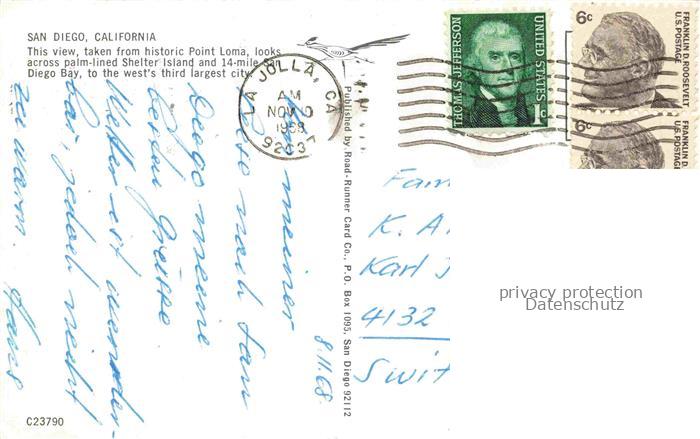 SAN DIEGO, CALIFORNIA
This view, taken from historic Point Loma, looks
across palm-lined Shelter Island and 14-mile San
Diego Bay, to the west's third largest city.
LA JOLLA, CA
AM
NOV
1968
92037
THOMAS JEFFERSON
UNITED STATES
1c
6c
FRANKLIN D. ROOSEVELT
U.S. POSTAGE
6c
FRANKLIN D.
U.S. POSTAGE
Published by Road-Runner Card Co., P. O. Box 1095, San Diego 92112
8.11.68.
meiner
Reise nach San
Diego meine
besten Grüsse
Wetter ist wunder-
bar, jedoch nicht
zu warm.
Hans
Fam
K. A
Karl J
4132
Swit
privacy protection
Datenschutz
C23790